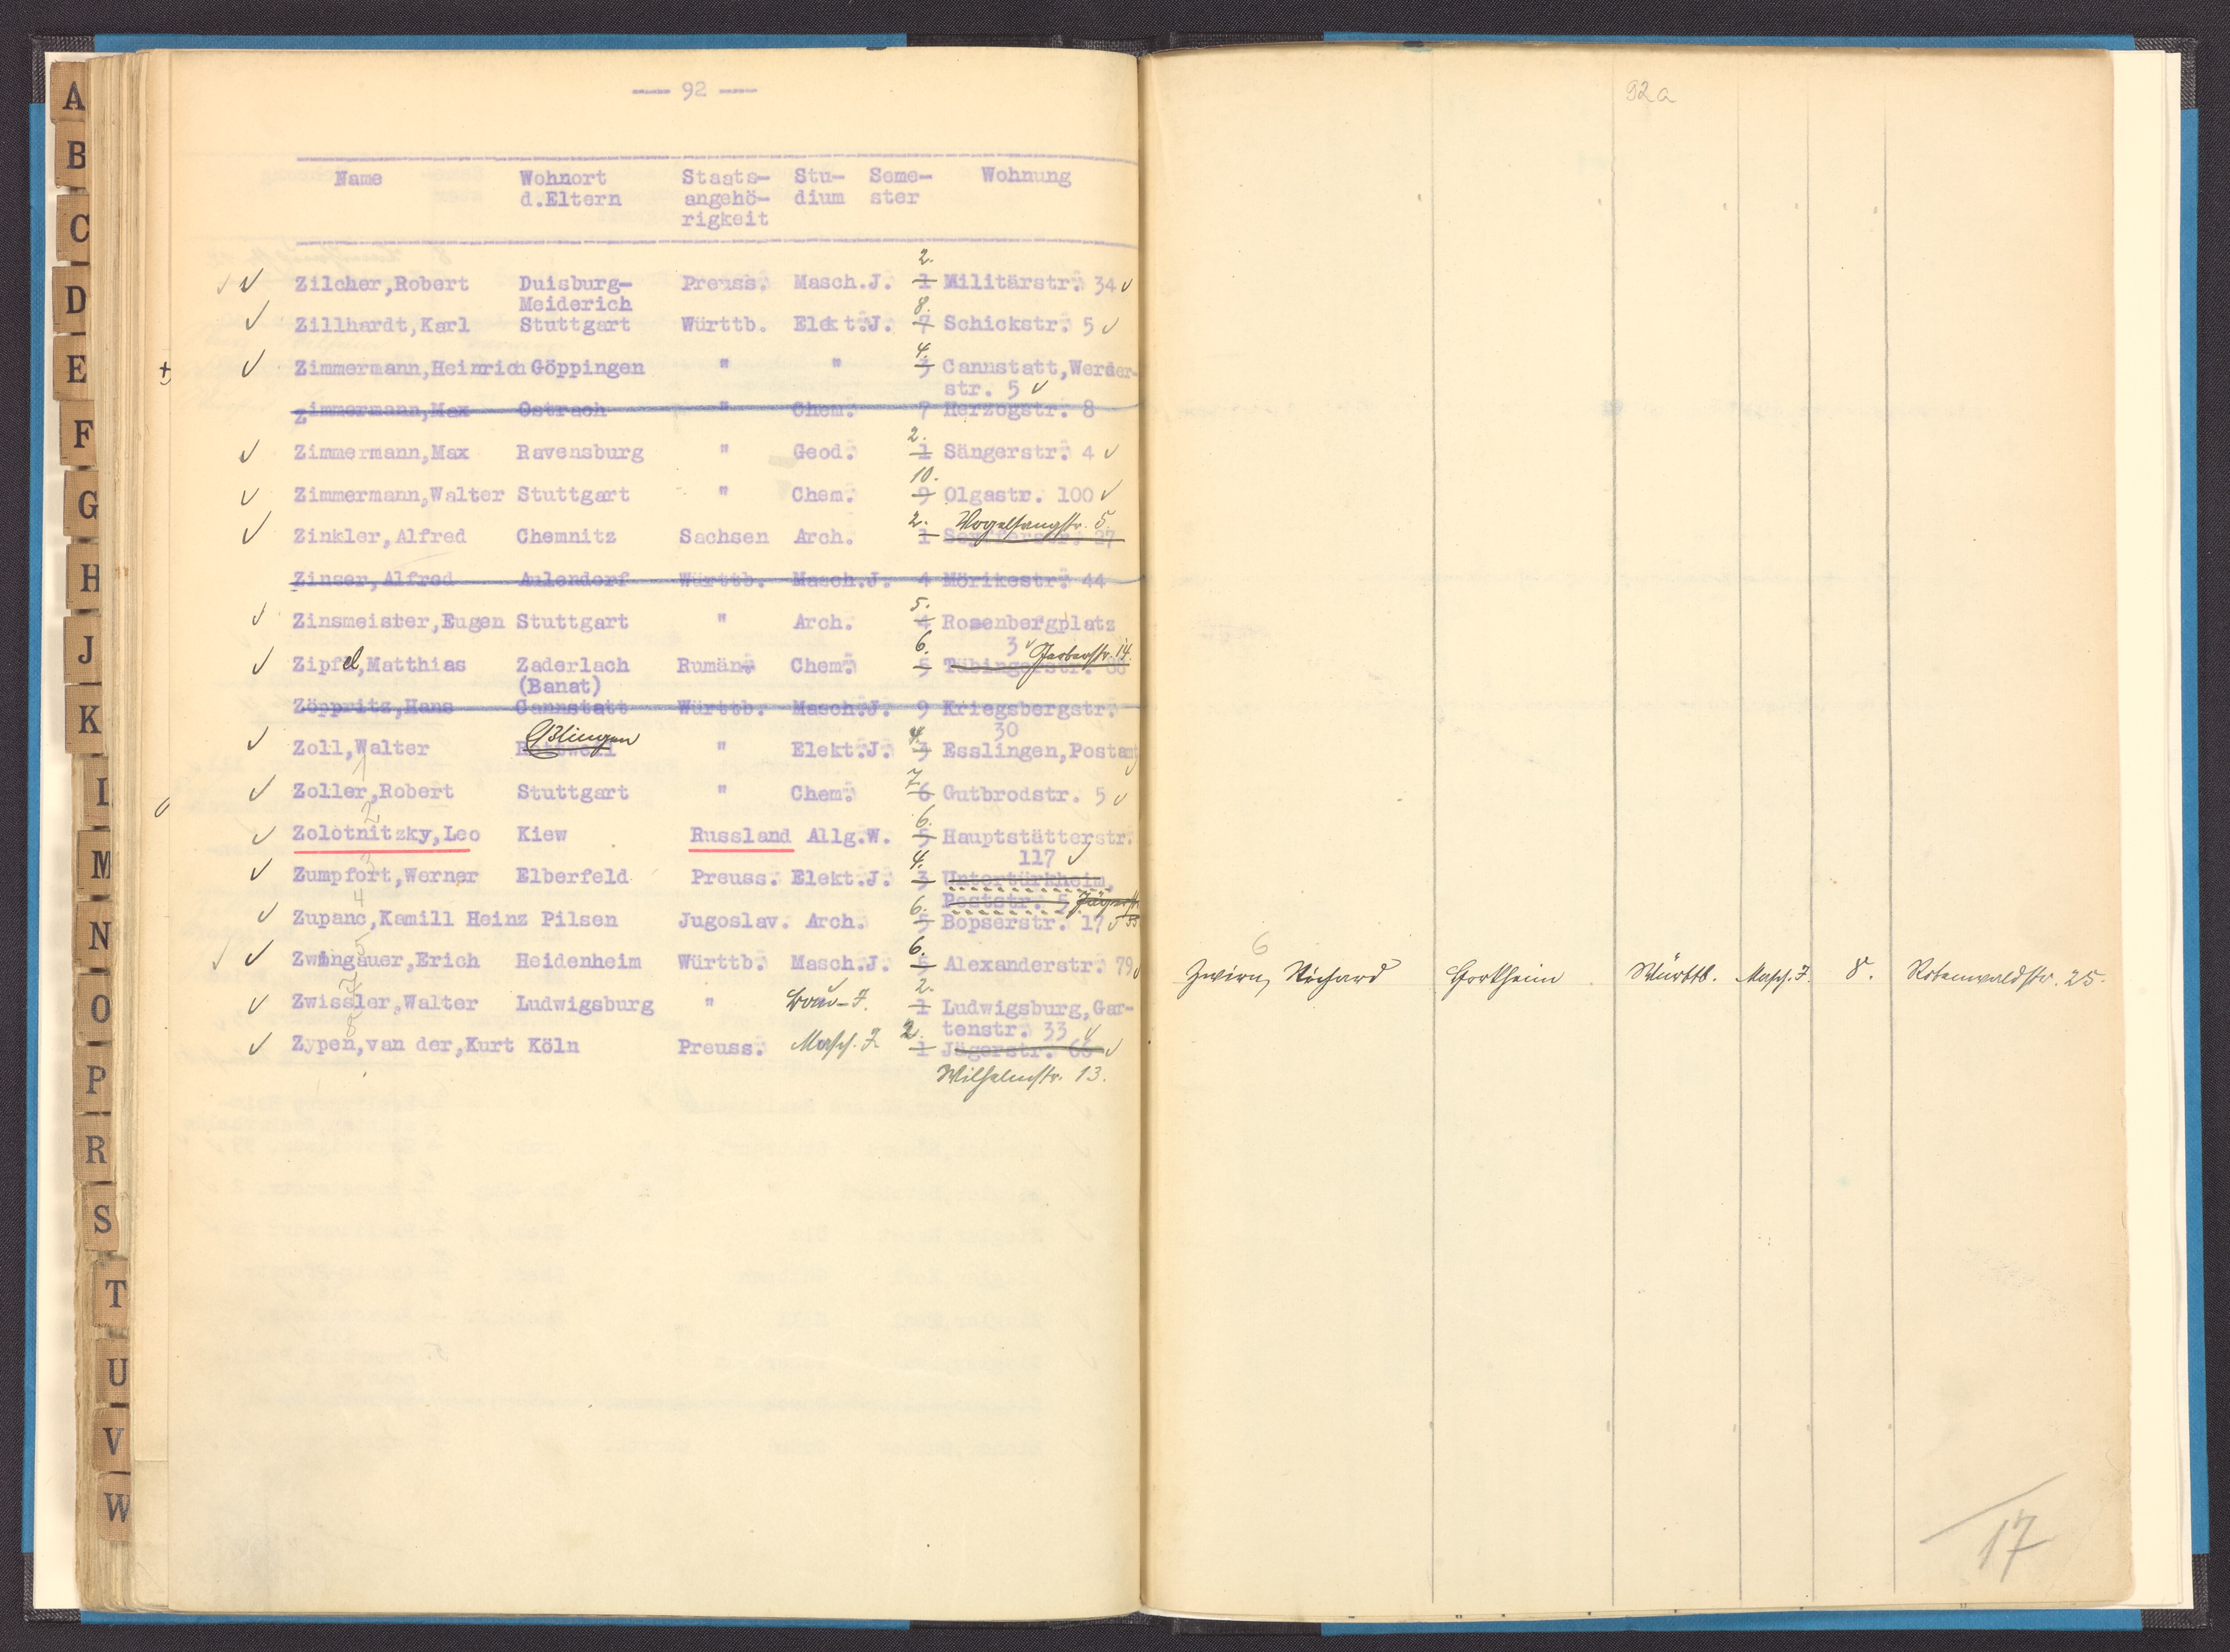 A
B
C
D
E
F
G
H
J
K
L
M
N
O
P
R
S
T
U
V
W
— 92 —
Name Wohnort Staats- Stu- Seme- Wohnung
d.Eltern angehö- dium ster
rigkeit
2.
Zilcher,Robert Duisburg- Preuss. Masch.J. 1 Militärstr. 34
Meiderich 8.
Zillhardt,Karl Stuttgart Württb. Elekt.J. 7 Schickstr. 5
4.
Zimmermann,Heinrich Göppingen " " 3 Cannstatt,Werder-
str. 5
Zimmermann,Max Ostrach " Chem. 7 Herzogstr. 8
2.
Zimmermann,Max Ravensburg " Geod. 1 Sängerstr. 4
10.
Zimmermann,Walter Stuttgart " Chem. 9 Olgastr. 100
2. Vogelsangstr. 5.
Zinkler,Alfred Chemnitz Sachsen Arch. 1 Seyfferstr. 27
Zinser,Alfred Aulendorf Württb. Masch.J. 4 Mörikestr. 44
5.
Zinsmeister,Eugen Stuttgart " Arch. 4 Rosenbergplatz
6. 3 Gerberstr. 14.
Zipfel,Matthias Zaderlach Rumän. Chem. 5 Tübingerstr.
(Banat)
Zöppritz,Hans Cannstatt Württb. Masch.J. 9 Kriegsbergstr.
30
Eßlingen
Zoll,Walter Rottweil " Elekt.J. 4. 3 Esslingen,Postamt
1
7.
Zoller,Robert Stuttgart " Chem. 6 Gutbrodstr. 5
2 6.
Zolotnitzky,Leo Kiew Russland Allg.W. 5 Hauptstätterstr.
3 4. 117
Zumpfort,Werner Elberfeld Preuss. Elekt.J. 3 Untertürkheim,
4 6. Poststr. 5 Jägerstr.
Zupanc,Kamill Heinz Pilsen Jugoslav. Arch. 5 Bopserstr. 17
5 6.
Zwingauer,Erich Heidenheim Württb. Masch.J. 5 Alexanderstr. 79
7 2.
Zwissler,Walter Ludwigsburg " Bau-J. 1 Ludwigsburg,Gar-
8 tenstr. 33
Zypen,van der,Kurt Köln Preuss. Masch. J. 2. 1 Jägerstr. 66
Wilhelmstr. 13.
92a
6
Zwirn, Richard Horkheim Württb. Masch. J. 8. Rotenwaldstr. 25.
17